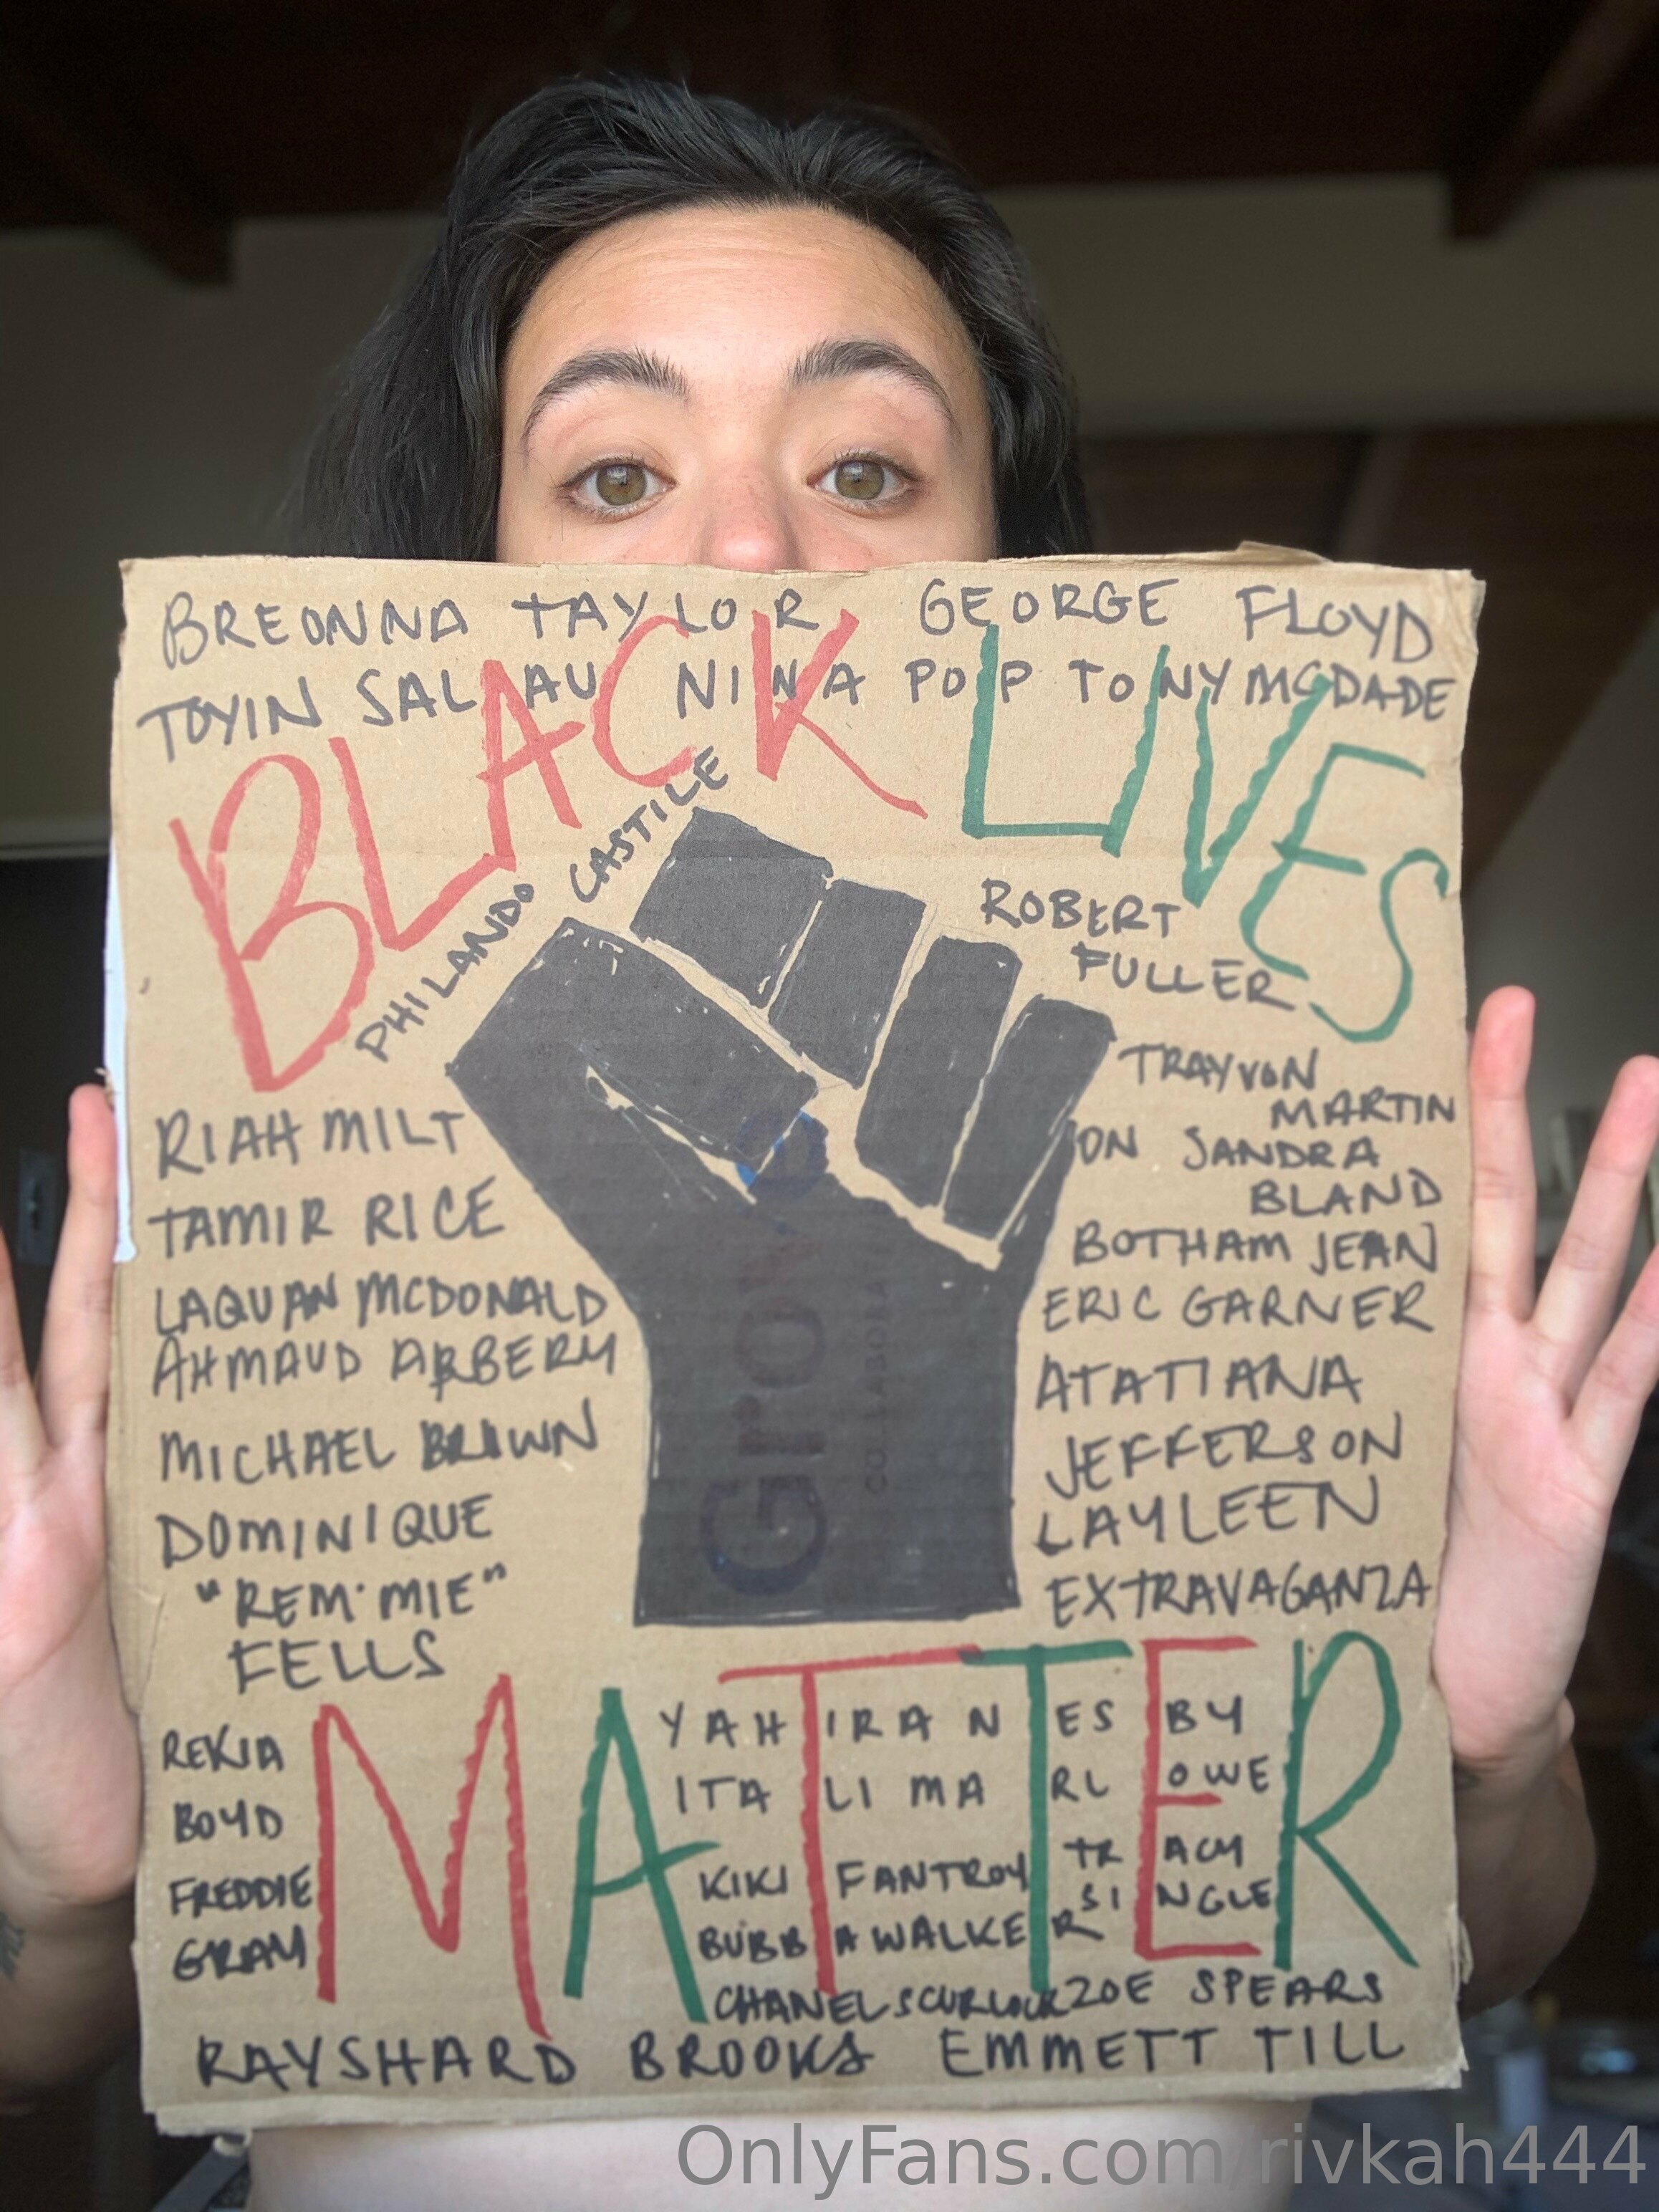 BREONNA TAYLOR GEORGE FLOYD
TOYIN SALAU NINA POP TONY MCDADE
BLACK LIVES
PHILANDO CASTILE
ROBERT
FULLER
TRAYVON
MARTIN
ON SANDRA
BLAND
BOTHAM JEAN
ERIC GARNER
ATATIANA
JEFFERSON
LAYLEEN
EXTRAVAGANZA
RIAH MILT
TAMIR RICE
LAQUAN MCDONALD
AHMAUD ARBERY
MICHAEL BROWN
DOMINIQUE
"REM'MIE"
FELLS
Grove
COLLABORA
MATTER
REKIA
BOYD
FREDDIE
GRAY
YAHIRA NESBY
ITALI MARLOWE
KIKI FANTROY
TRACY
SINGLE
BUBBA WALKER
CHANEL SCURLOCK ZOE SPEARS
RAYSHARD BROOKS EMMETT TILL
OnlyFans.com/rivkah444